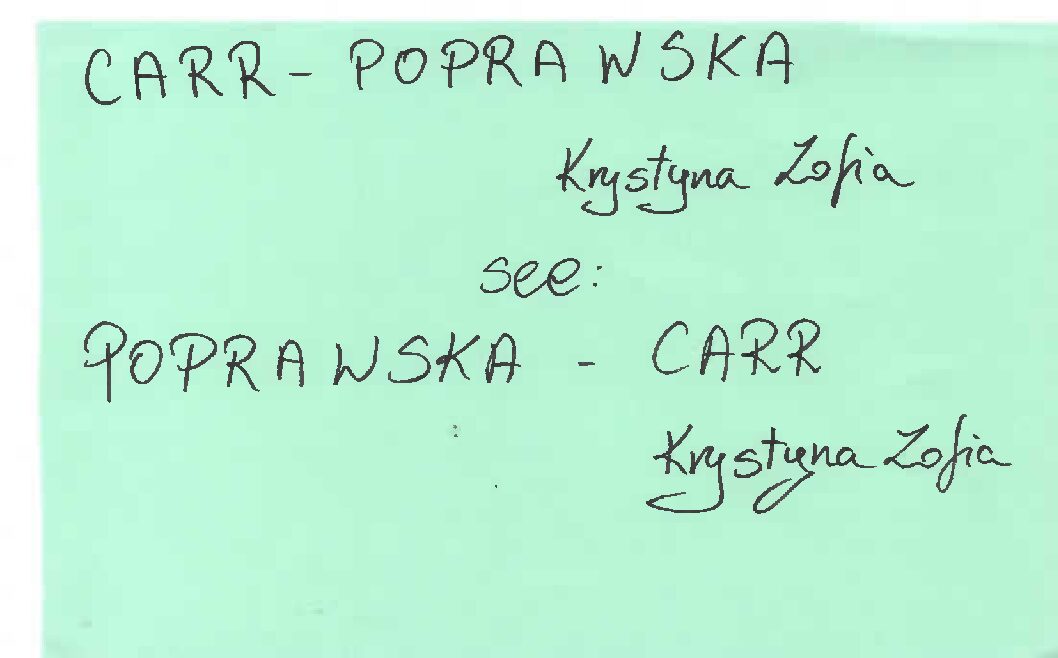 CARR-POPRAWSKA
Krystyna Zofia
see:
POPRAWSKA - CARR
Krystyna Zofia